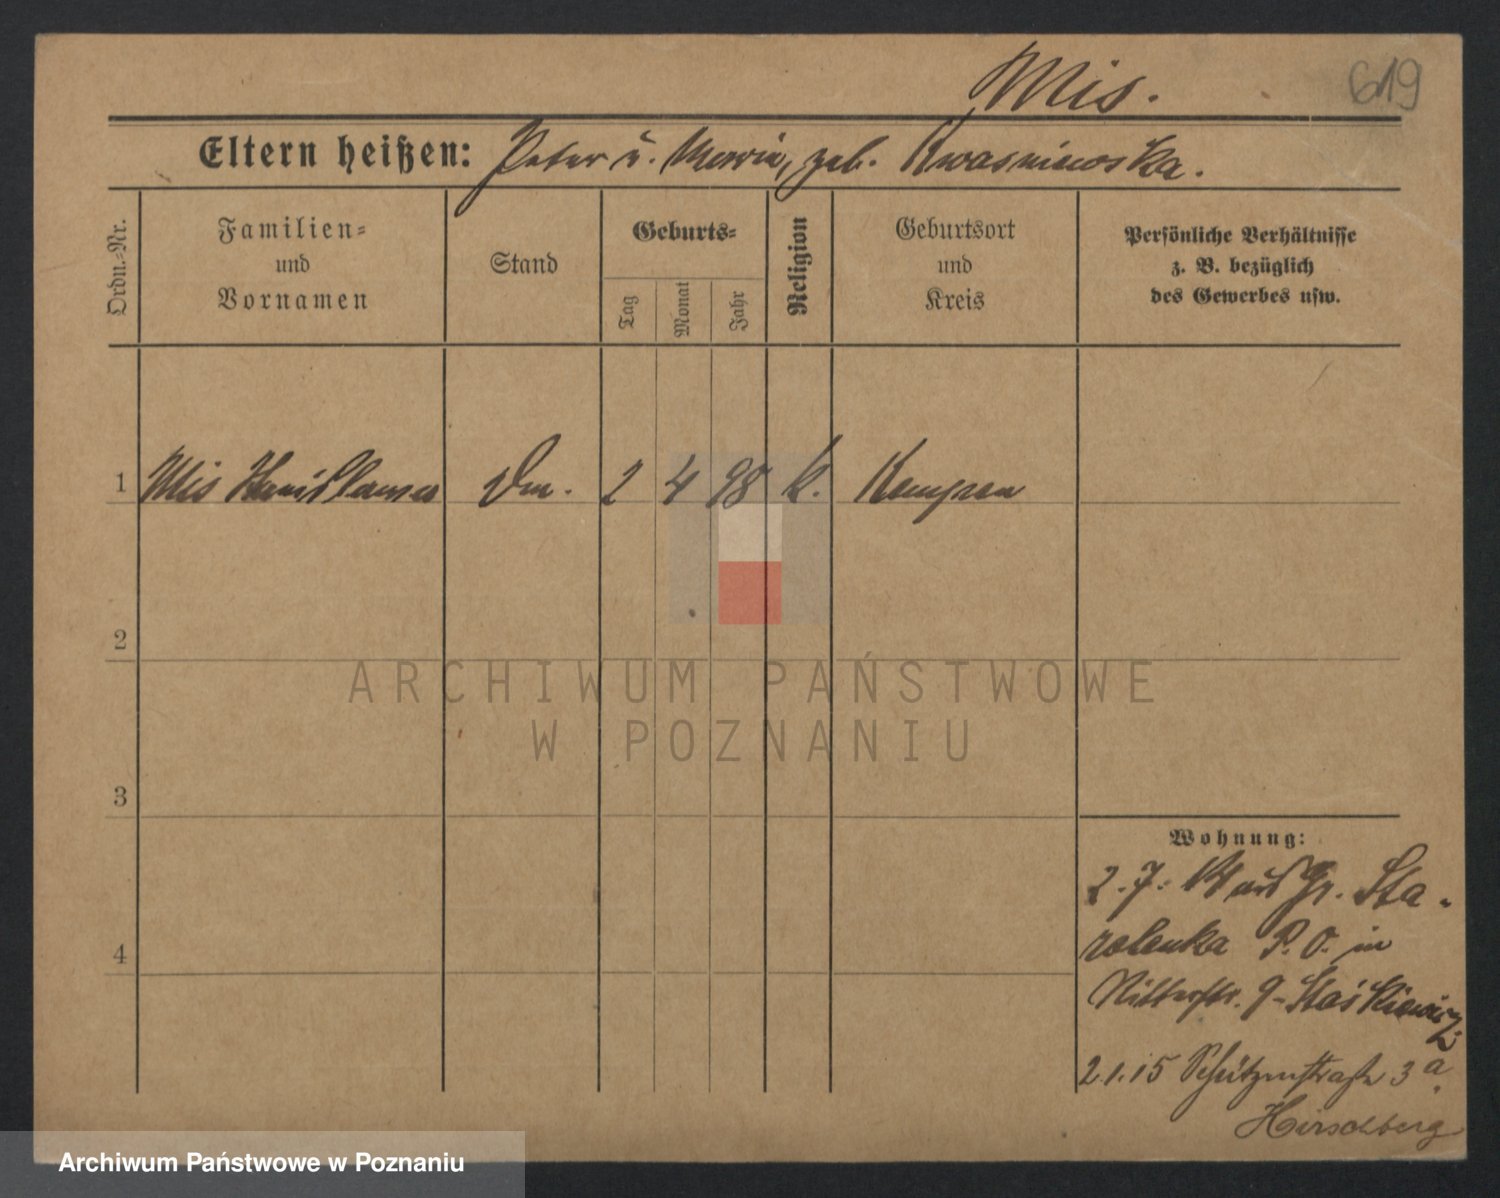 Mis.
619
Eltern heißen: Peter u. Maria, geb. Kwasniewska.
Ordn.-Nr.
Familien- und Vornamen
Stand
Geburts-
Tag
Monat
Jahr
Religion
Geburtsort und Kreis
Persönliche Verhältnisse z. B. bezüglich des Gewerbes usw.
1 Mis Stanislawa 2 4 98 k. Kempen
2
3
4
Wohnung:
2.7. 14 aus Gr. Sta-
rolenka P. O. in
Ritterstr. 9 - Staśkiewicz
2.1.15 Schützenstraße 3a
Hirschberg
ARCHIWUM PAŃSTWOWE
W POZNANIU
Archiwum Państwowe w Poznaniu